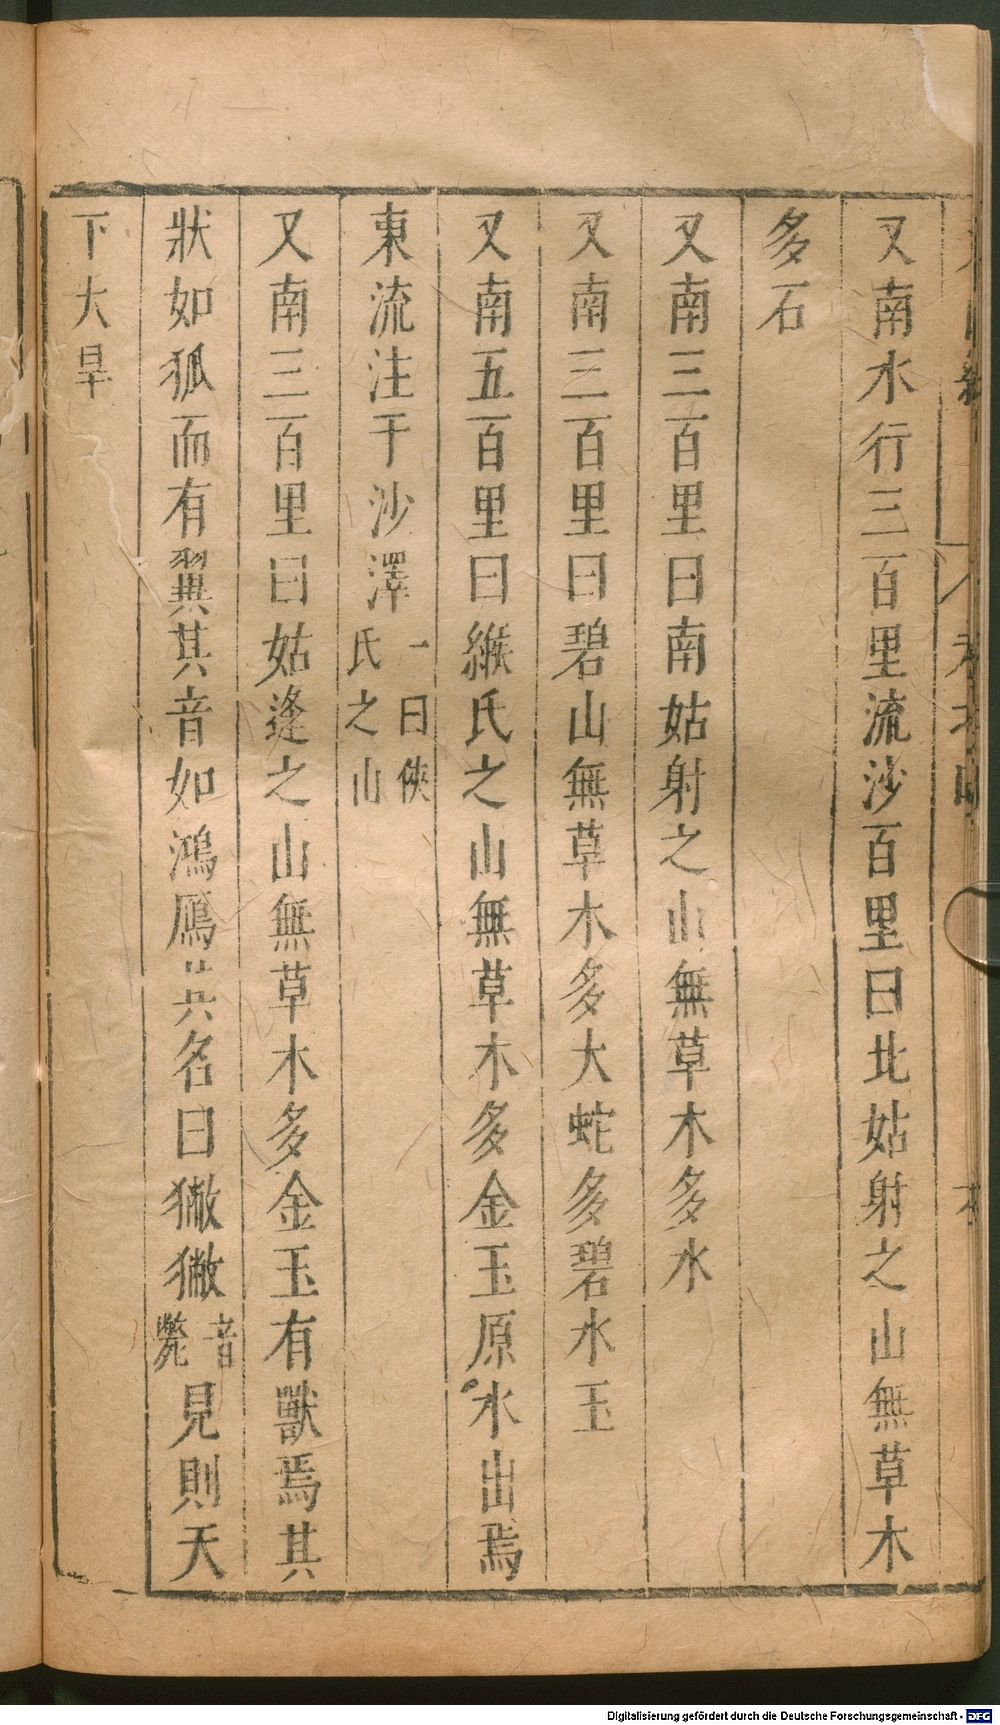 又南水行三百里流沙百里曰北姑射之山無草木
多石
又南三百里曰南姑射之山無草木多水
又南三百里曰碧山無草木多大蛇多碧水玉
又南五百里曰緱氏之山無草木多金玉原水出焉
東流注于沙澤一曰俠氏之山
又南三百里曰姑逢之山無草木多金玉有獸焉其
狀如狐而有翼其音如鴻鴈其名曰獙獙音斃見則天
下大旱
Digitalisierung gefördert durch die Deutsche Forschungsgemeinschaft - DFG